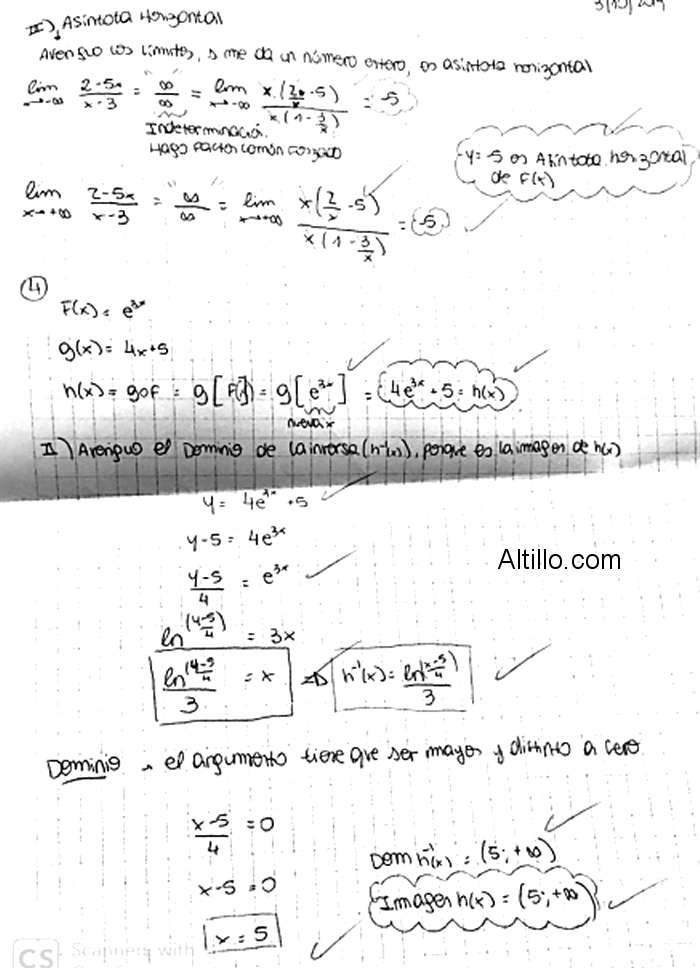 II) Asintota Horizontal
Averiguo los limites, si me da un número entero, es asintota horizontal
lim x→-∞ (2-5x)/(x-3) = "∞/∞" = lim x→-∞ x.(2/x -5)/x(1-3/x) = -5
Indeterminació.
Hago Factor común Forzado
y=-5 es Asintota horizontal
de F(x)
lim x→+∞ (2-5x)/(x-3) = "∞/∞" = lim x→+∞ x(2/x -5)/x(1-3/x) = -5
4
F(x) = e^3x
g(x) = 4x+5
h(x) = goF = g[F(x)] = g[e^3x] = 4e^3x + 5 = h(x)
nueva x
II) Averiguo el Dominio de la inversa (h^-1(x)), porque es la imagen de h(x)
y = 4e^3x + 5
y-5 = 4e^3x
Altillo.com
(y-5)/4 = e^3x
ln(y-5/4) = 3x
ln(y-5/4)/3 = x ⇒ h^-1(x) = ln(x-5/4)/3
Dominio → el argumento tiene que ser mayor y distinto a cero
(x-5)/4 = 0
x-5 = 0
x = 5
Dom h^-1(x) = (5; +∞)
Imagen h(x) = (5; +∞)
CS Scanned with